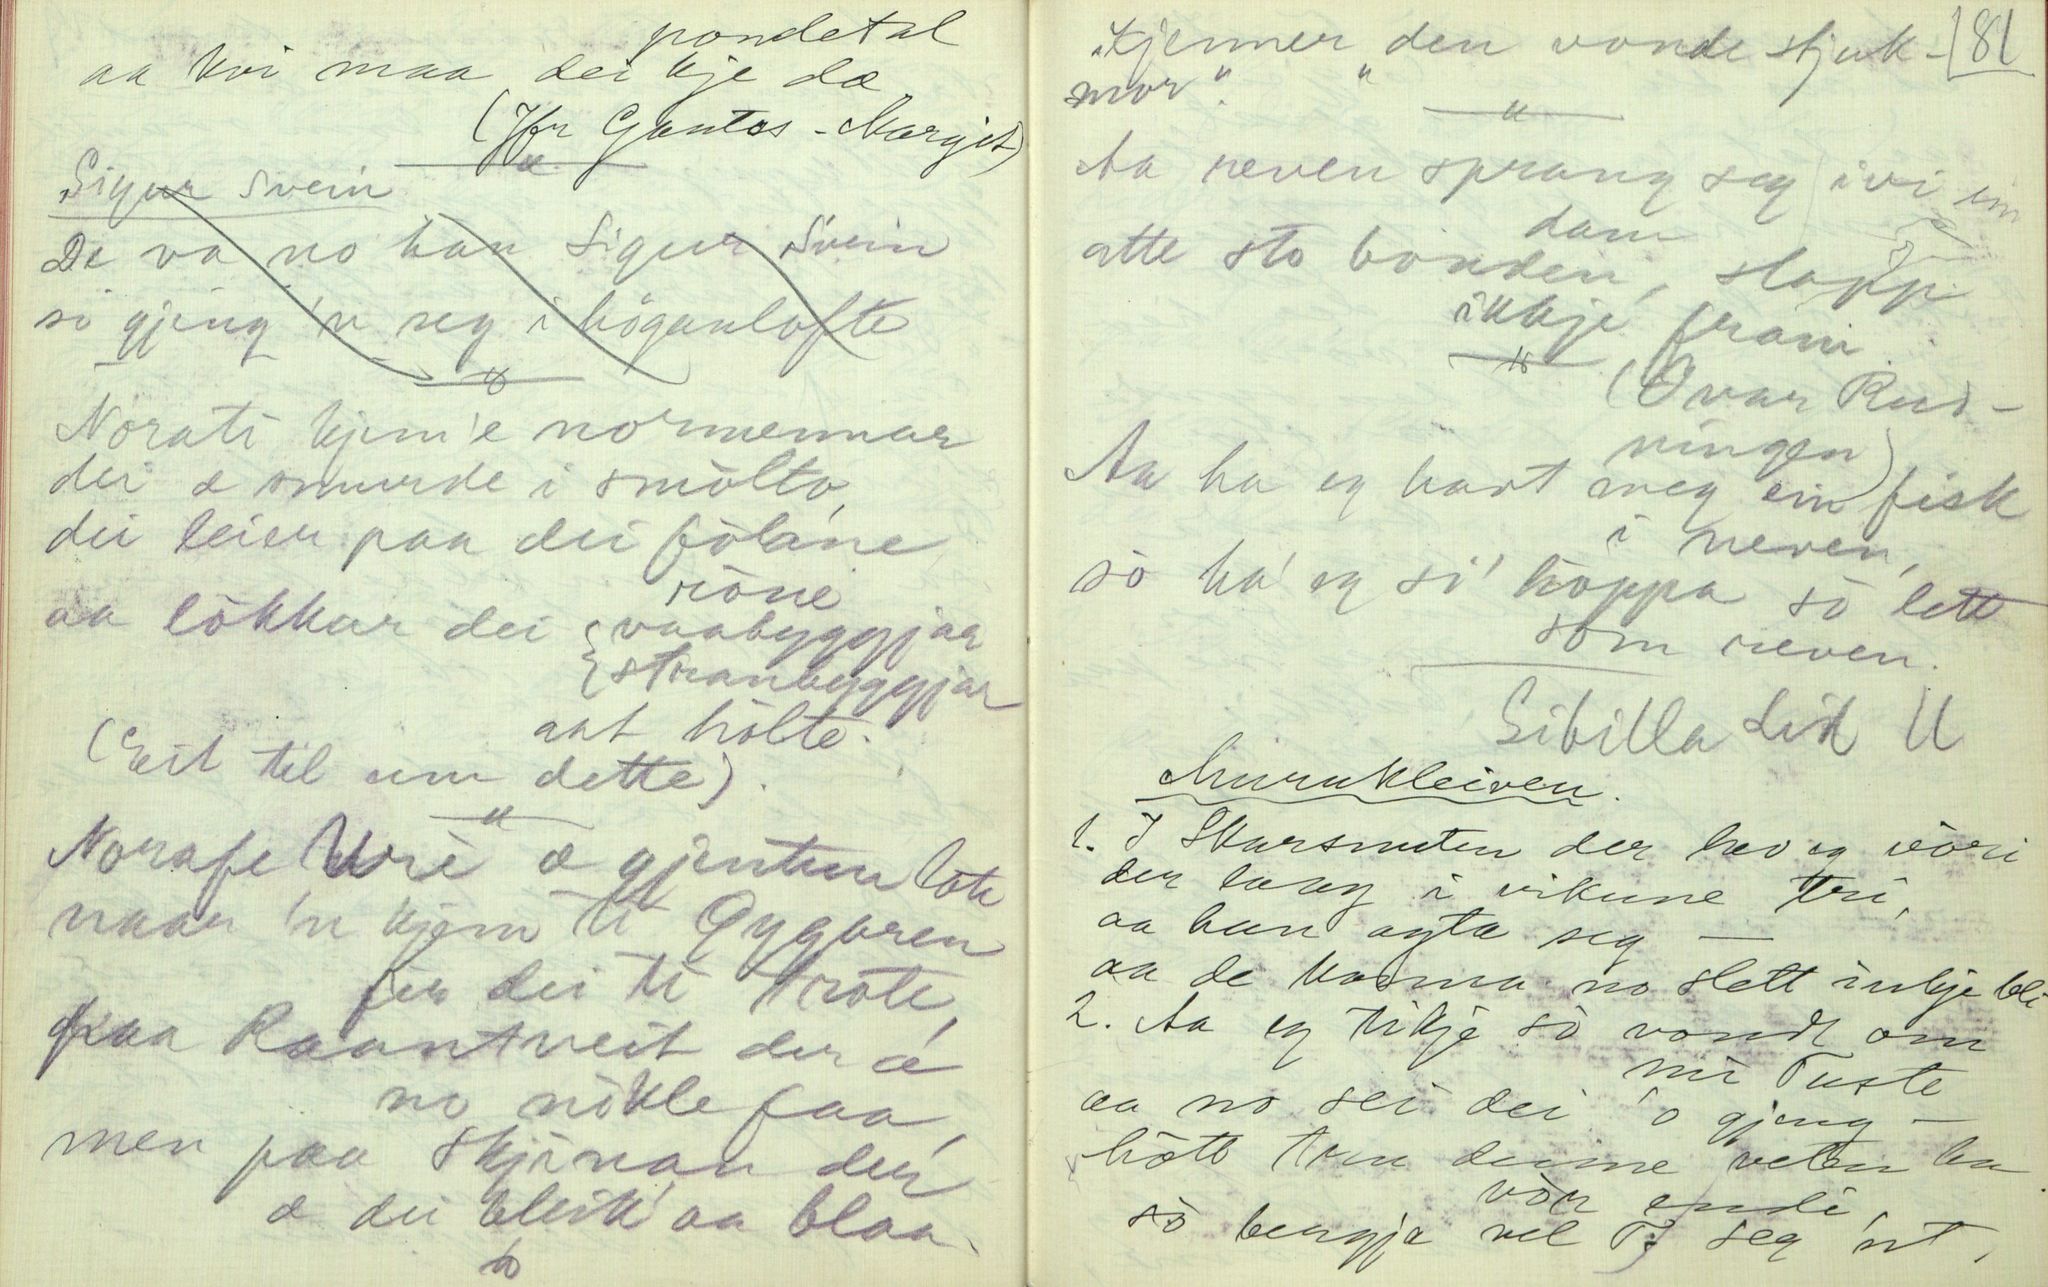 pondetal
aa kvi maa dei kje dæ
(Jfr Gontos-Margjit)
"
Sigur Svein
De va no han Sigur Svein
so gjeng 'n seg i höganlofte
"
Norati kjem'e normennar
dei æ smurde i smolto,
dei leier paa dei fölane
röne
aa lökkar dei { vaabyggjar
{ stranbyggjar
aat holte.
(Eit til um dette).
"
Norafe Uvrè æ gjentun lote
naar 'n kjem ti Gygaren
fer dei ti tröte,
paa Rauntveit der æ
no nökle faa,
men paa Skjönan der
æ dei bleik' aa blaa.
181
"Kjenner "den vonde stjuk-
mor".
"
Aa reven sprang seg ivi ein
dam
atte sto bonden, slapp
ikkje fram.
"
(Ovar Rud-
ningen)
Aa ha eg havt meg ein fisk
i neven,
so ha' eg si' hoppa so lett
som reven.
Sibilla Lid U
Murukleiven.
1. I Skarsnuten der hev eg vöri
der laag i vikune tri,
aa han agta seg —
aa de kunna no slett inkje bli
2. Aa eg tikje so vondt om
ni Tuste
aa no sei dei 'o gjeng —
hott tru denne veten ha
vör endi,
so bergja vel T. seg 'ut.